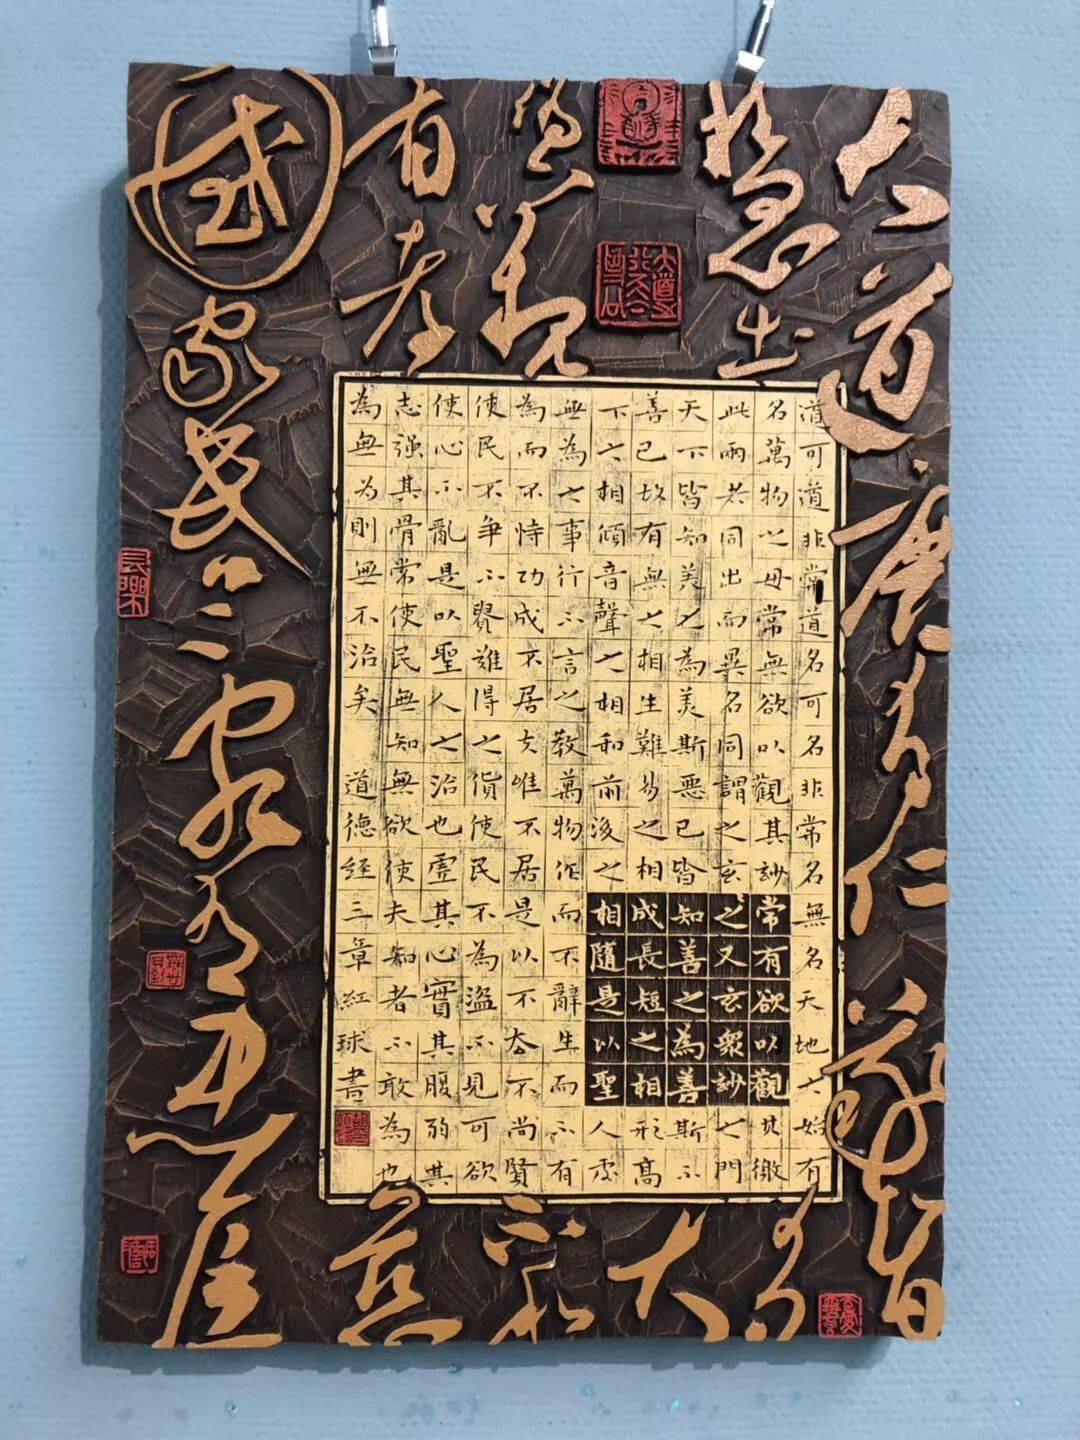 大道廢有仁義智
慧出有大
偽六親不和
有孝慈
國家昏亂有忠臣
道可道非常道名可名非常名無名天地之始有
名萬物之母常無欲以觀其妙常有欲以觀其徼
此兩者同出而異名同謂之玄之又玄眾妙之門
天下皆知美之為美斯惡已皆知善之為善斯不
善已故有無之相生難易之相成長短之相形高
下之相傾音聲之相和前後之相隨是以聖人處
無為之事行不言之教萬物作而不辭生而不有
為而不恃功成不居夫唯不居是以不去不尚賢
使民不爭不貴難得之貨使民不為盜不見可欲
使心不亂是以聖人之治也虛其心實其腹弱其
志强其骨常使民無知無欲使夫知者不敢為也
為無為則無不治矣 道德經三章紅球書